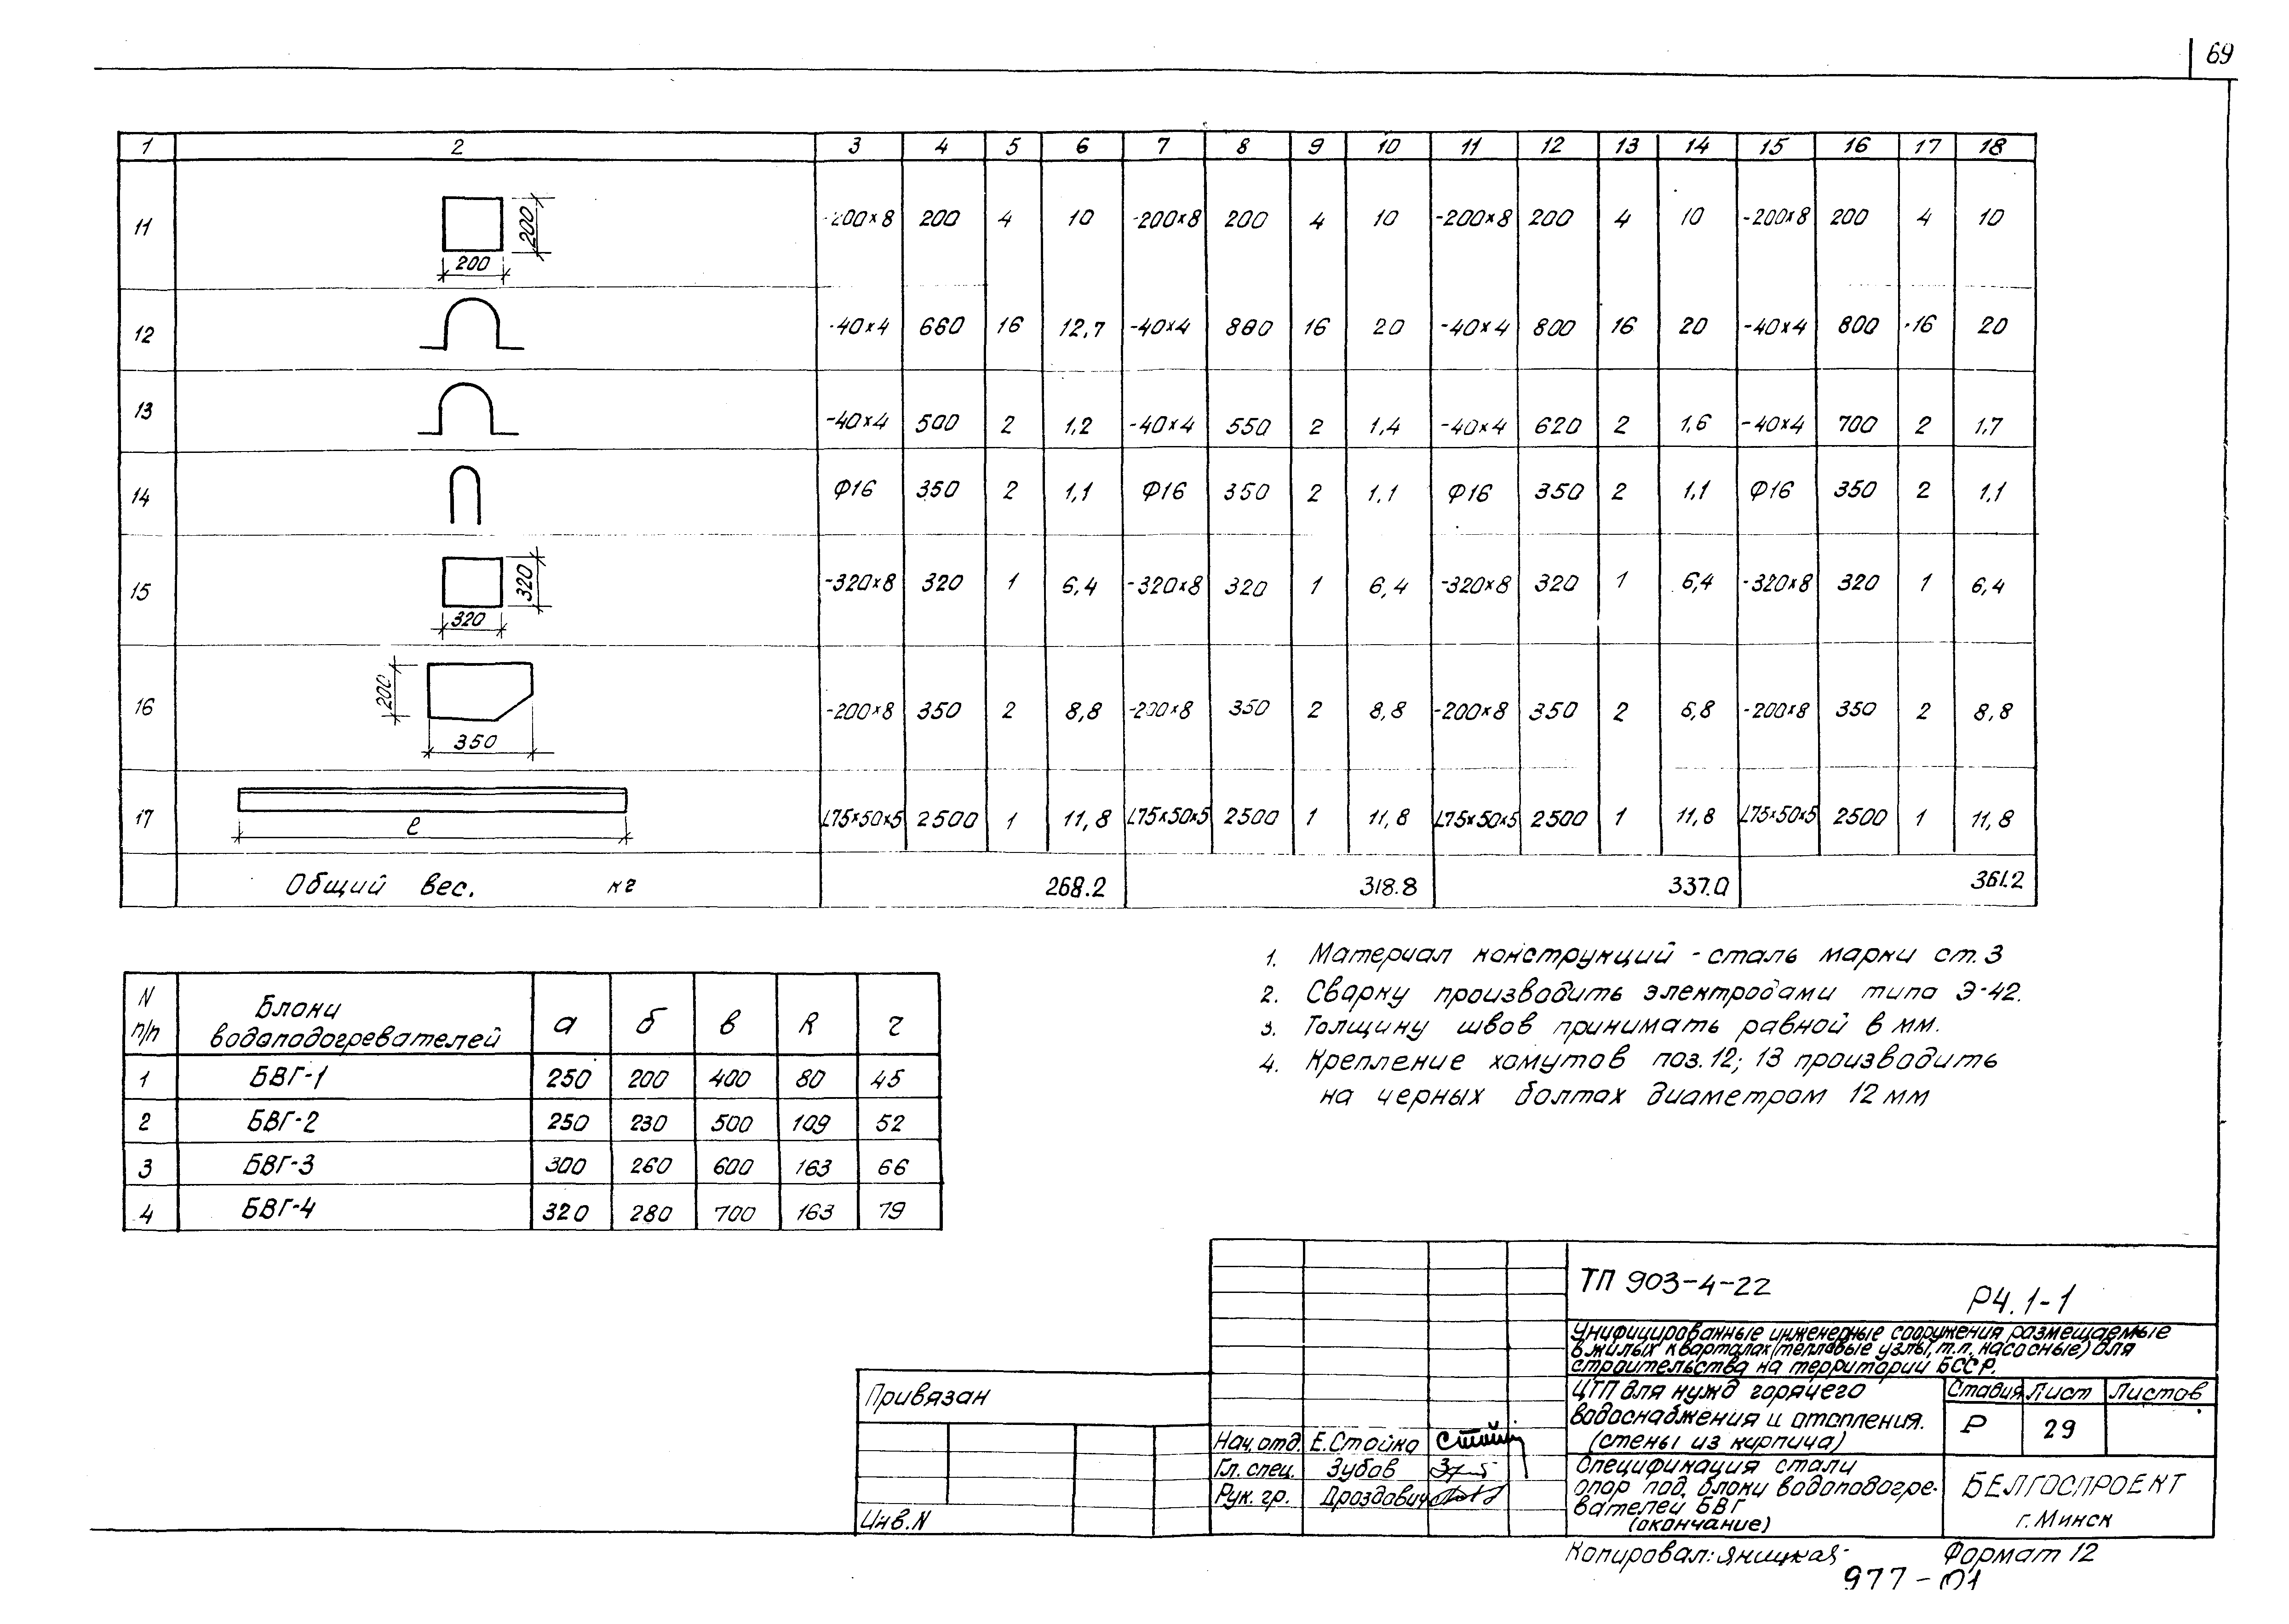 69
1 2 3 4 5 6 7 8 9 10 11 12 13 14 15 16 17 18
11 200 200 -200×8 200 4 10 -200×8 200 4 10 -200×8 200 4 10 -200×8 200 4 10
12 -40×4 660 16 12,7 -40×4 800 16 20 -40×4 800 16 20 -40×4 800 16 20
13 -40×4 500 2 1,2 -40×4 550 2 1,4 -40×4 620 2 1,6 -40×4 700 2 1,7
14 Ф16 350 2 1,1 Ф16 350 2 1,1 Ф16 350 2 1,1 Ф16 350 2 1,1
15 320 320 -320×8 320 1 6,4 -320×8 320 1 6,4 -320×8 320 1 6,4 -320×8 320 1 6,4
16 200 350 -200×8 350 2 8,8 -200×8 350 2 8,8 -200×8 350 2 8,8 -200×8 350 2 8,8
17 ℓ L75×50×5 2500 1 11,8 L75×50×5 2500 1 11,8 L75×50×5 2500 1 11,8 L75×50×5 2500 1 11,8
Общий вес. кг 268.2 318.8 337.0 361.2
N п/п Блоки водоподогревателей а б в R г
1 БВГ-1 250 200 400 80 45
2 БВГ-2 250 230 500 109 52
3 БВГ-3 300 260 600 163 66
4 БВГ-4 320 280 700 163 79
1. Материал конструкций - сталь марки ст. 3
2. Сварку производить электродами типа Э-42.
3. Толщину швов принимать равной 8 мм.
4. Крепление хомутов поз. 12; 13 производить
на черных болтах диаметром 12 мм
ТП 903-4-22 Р4.1-1
Унифицированные инженерные сооружения размещаемые
в жилых кварталах (тепловые узлы, т.п. насосные) для
строительства на территории БССР.
ЦТП для нужд горячего
водоснабжения и отопления.
(стены из кирпича)
Стадия Лист Листов
Р 29
Спецификация стали
опор под блоки водоподогре-
вателей БВГ
(окончание)
БЕЛГОСПРОЕКТ
г. Минск
Привязан
Инв. N
Нач. отд. Е. Стойко
Гл. спец. Зубов
Рук. гр. Дроздович
Копировал: Яницкая Формат 12
977-01